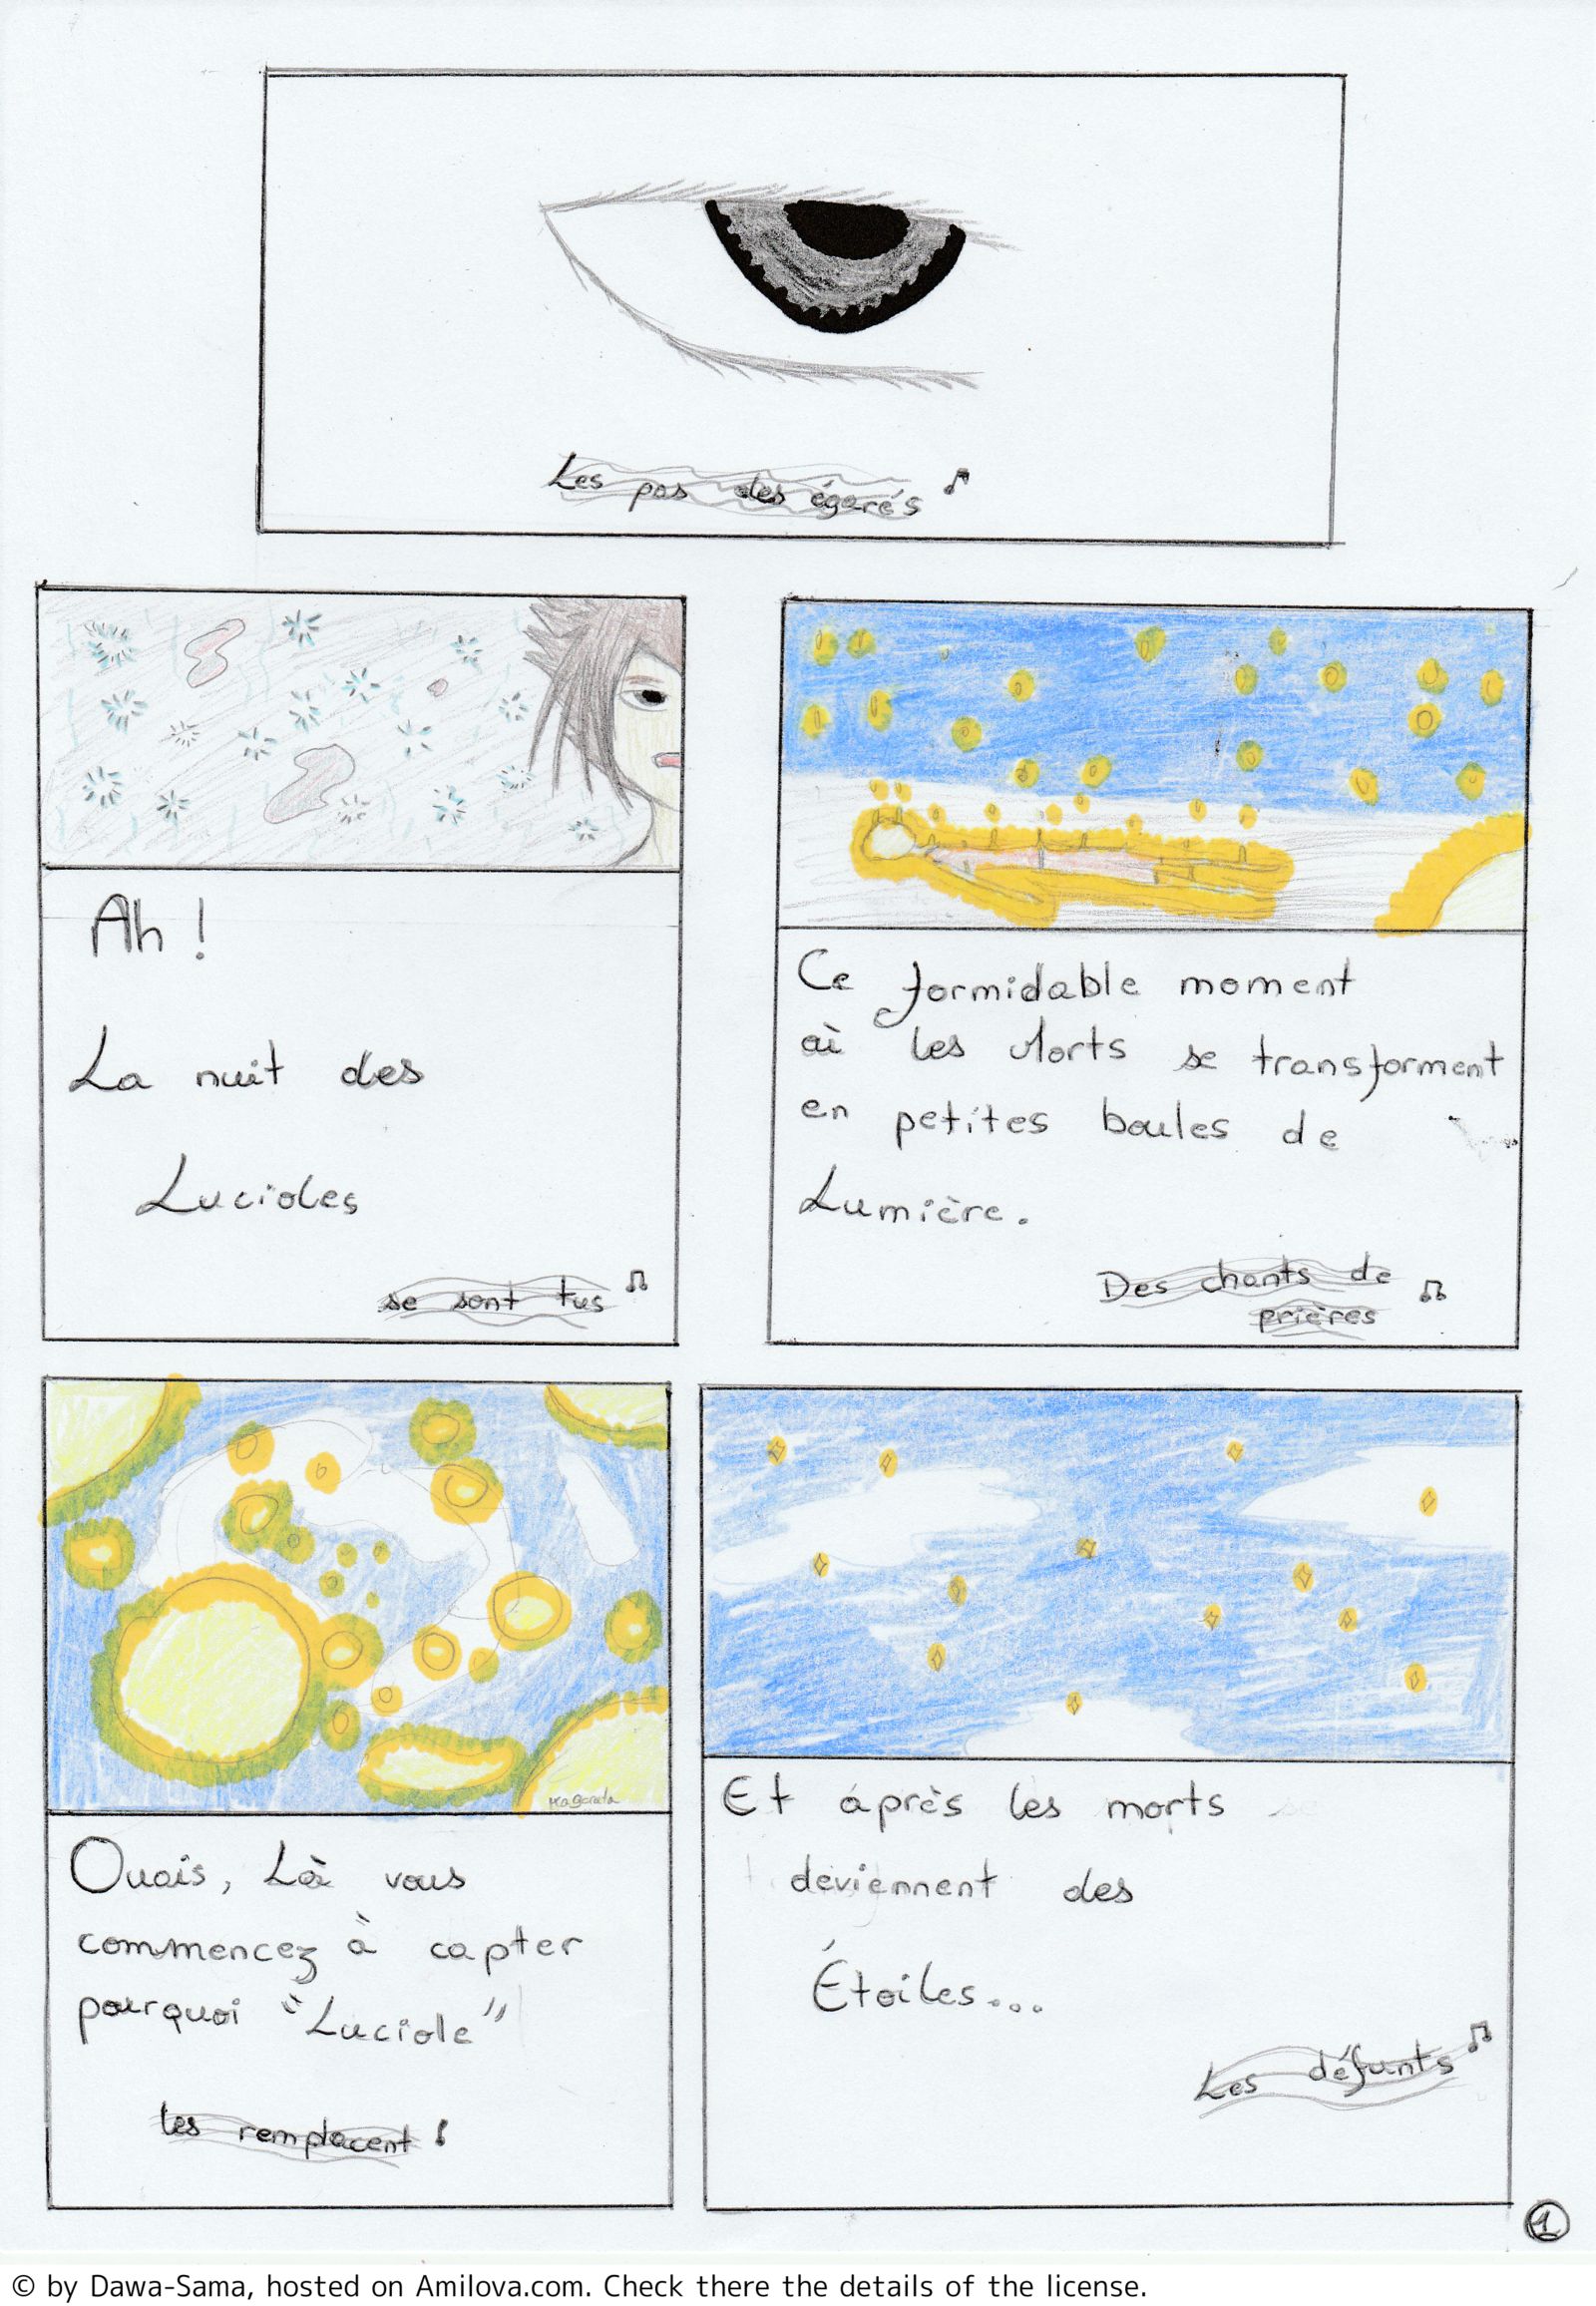 Les pas des égarés
Ah !
La nuit des
Lucioles
se sont tus
Ce formidable moment
où les Morts se transforment
en petites boules de
Lumière.
Des chants de
prières
Kagerata
Ouais, Là vous
commencez à capter
pourquoi "Luciole"
les remplacent
Et áprès les morts
deviennent des
Étoiles...
Les défunts
1
© by Dawa-Sama, hosted on Amilova.com. Check there the details of the license.